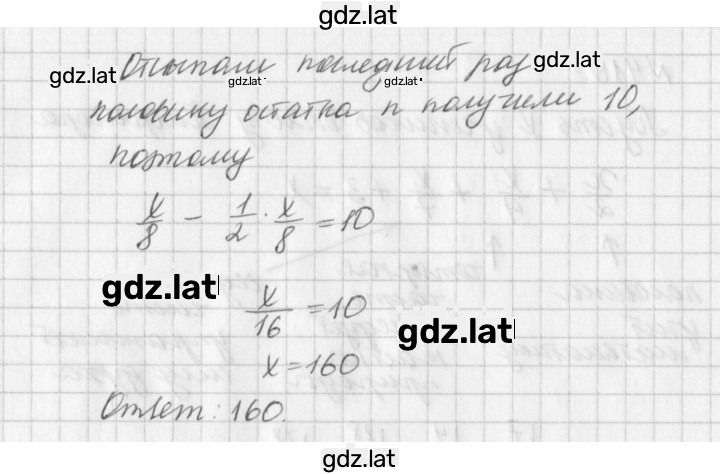 gdz.lat
Отсыпали последний раз
gdz.lat gdz.lat gdz.lat
половину остатка и получили 10,
поэтому
x/8 - 1/2 · x/8 = 10
gdz.lat
x/16 = 10
gdz.lat
x = 160
Ответ: 160.
gdz.lat